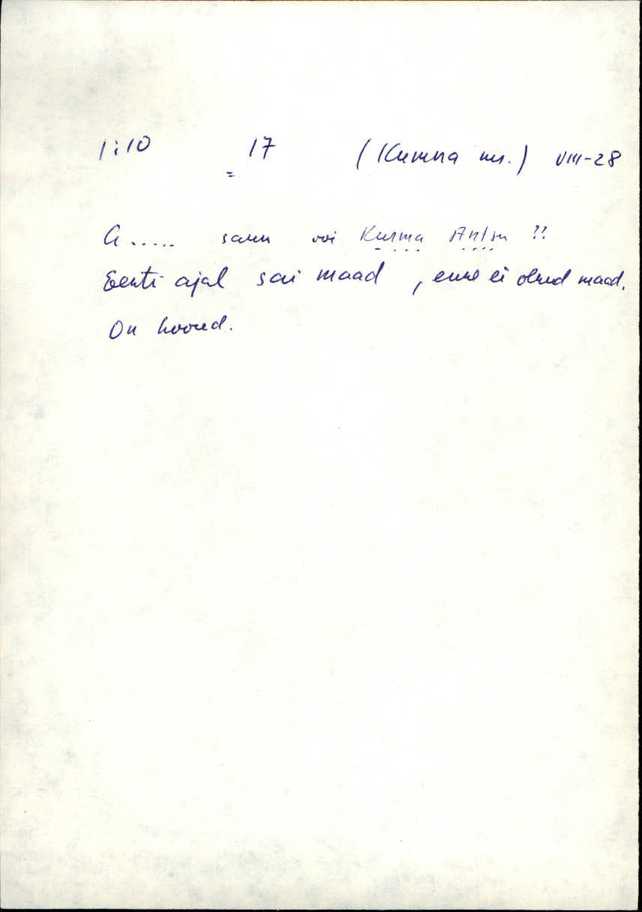 1:10 17 (Kumna ms.) VIII-28
=
A..... saun või Kurma Antsu !!
Eesti ajal sai maad, enne ei olnud maad.
On hooned.